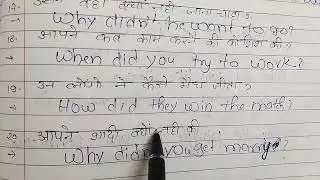 17. उसने वहाँ क्यों नहीं जाना चाहा?
→ Why didn't he want to go?
18. आपने कब काम करने की कोशिश की?
→ When did you try to work?
19. उन लोगों ने कैसे मैच जीता?
→ How did they win the math?
20. आपने शादी क्यों नहीं की
→ Why didn't you get marry?